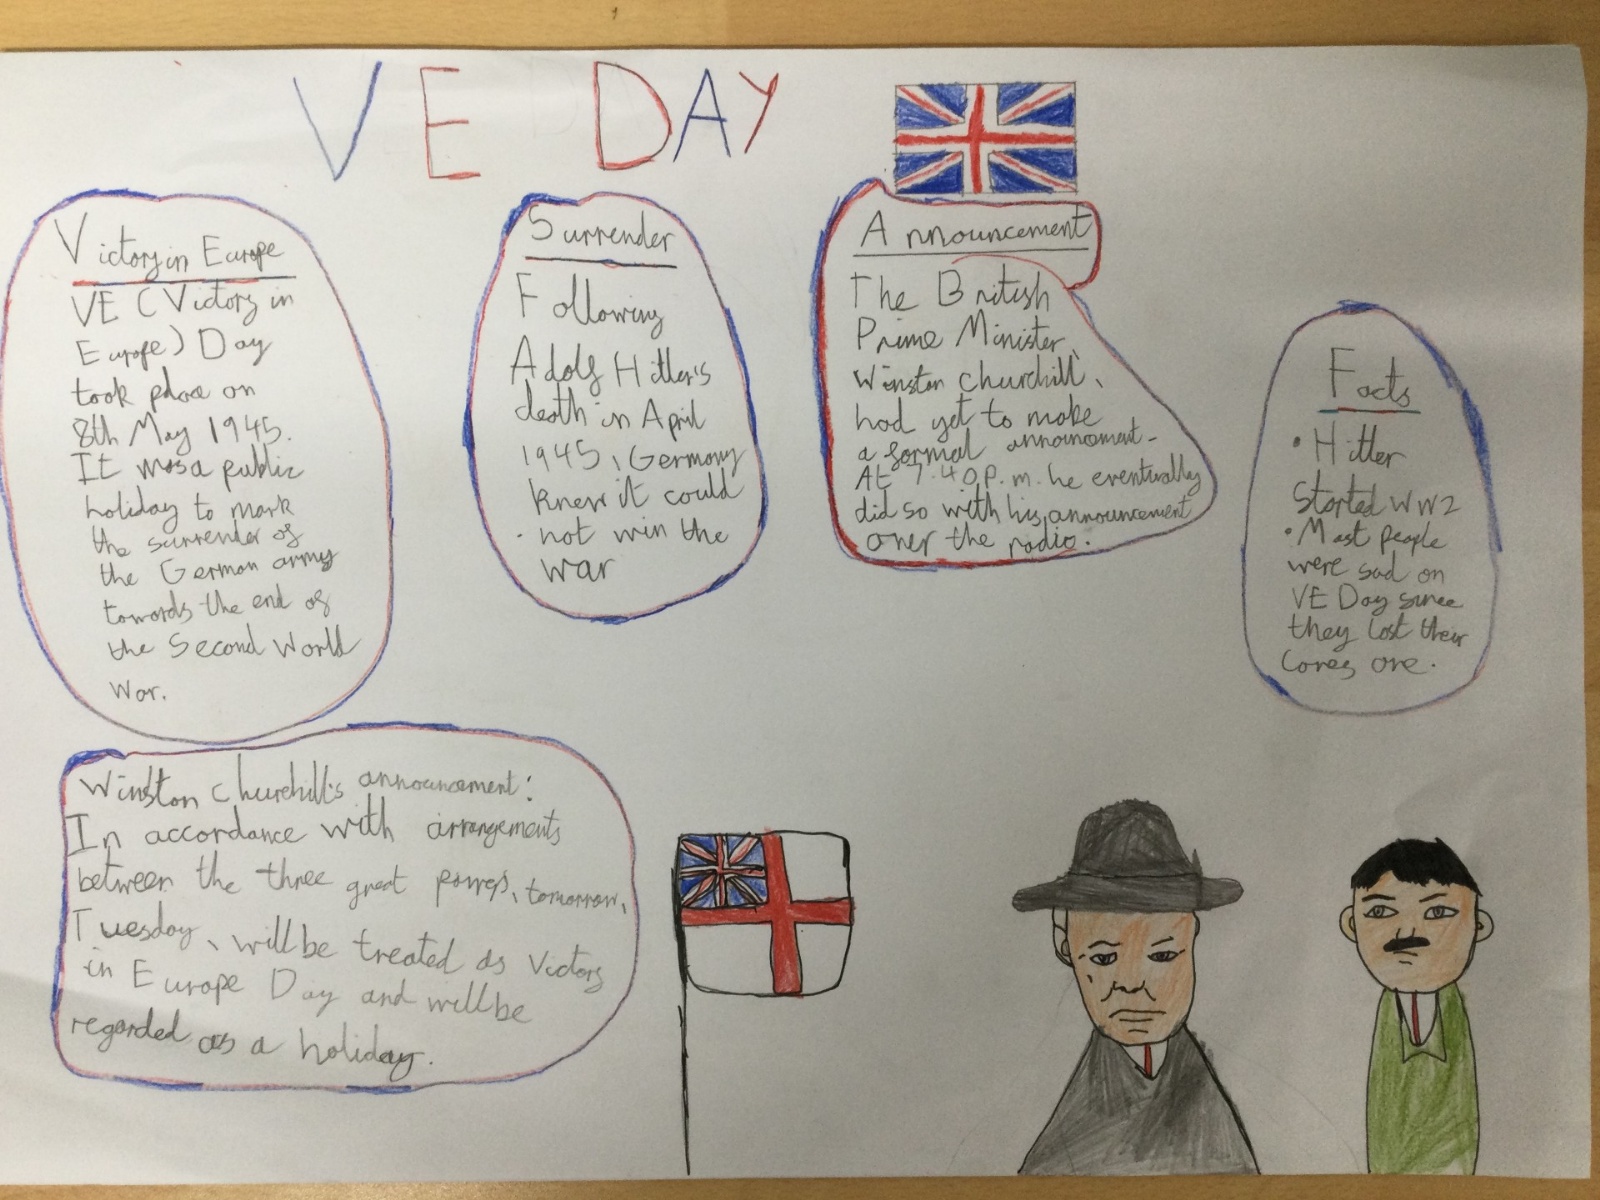 VE DAY
Victory in Europe
VE (Victory in
Europe) Day
took place on
8th May 1945.
It was a public
holiday to mark
the surrender of
the German army
towards the end of
the Second World
War.
Surrender
Following
Adolf Hitler's
death in April
1945, Germany
knew it could
not win the
war
Announcement
The British
Prime Minister,
Winston Churchill,
had yet to make
a formal announcement.
At 7.40p.m. he eventually
did so with his announcement
over the radio.
Facts
• Hitler
Started WW2
• Most people
were sad on
VE Day since
they lost their
one.
Winston Churchill's announcement:
In accordance with arrangements
between the three great powers, tomorrow,
Tuesday, will be treated as Victory
in Europe Day and will be
regarded as a holiday.